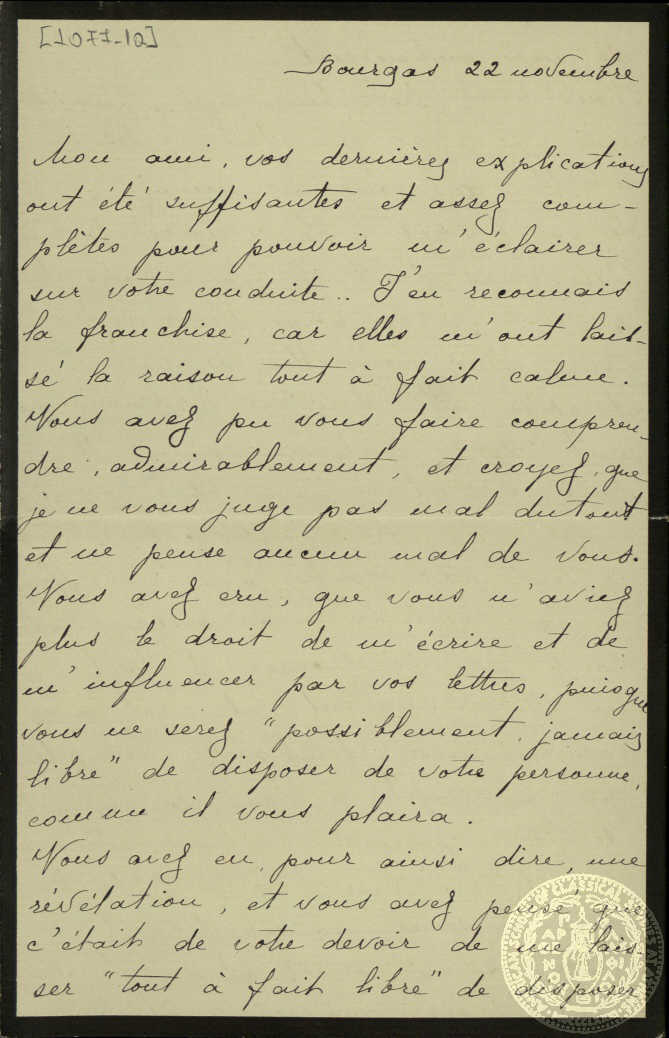 [10-7701]
Bourgas 22 novembre
Mon ami, vos dernières explications
ont été suffisantes et assez com-
plètes pour pouvoir m'éclairer
sur votre conduite.. J'en reconnais
la franchise, car elles m'ont lais-
sé la raison tout à fait calme.
Vous avez pu vous faire compren-
dre, admirablement, et croyez, que
je ne vous juge pas mal du tout
et ne pense aucun mal de vous.
Vous avez cru, que vous n'aviez
plus le droit de m'écrire et de
m'influencer par vos lettres, puisque
vous ne serez "possiblement jamais
libre" de disposer de votre personne,
comme il vous plaira.
Vous avez eu, pour ainsi dire, une
révélation, et vous avez pensé que
c'était de votre devoir de me lais-
ser "tout à fait libre" de disposer